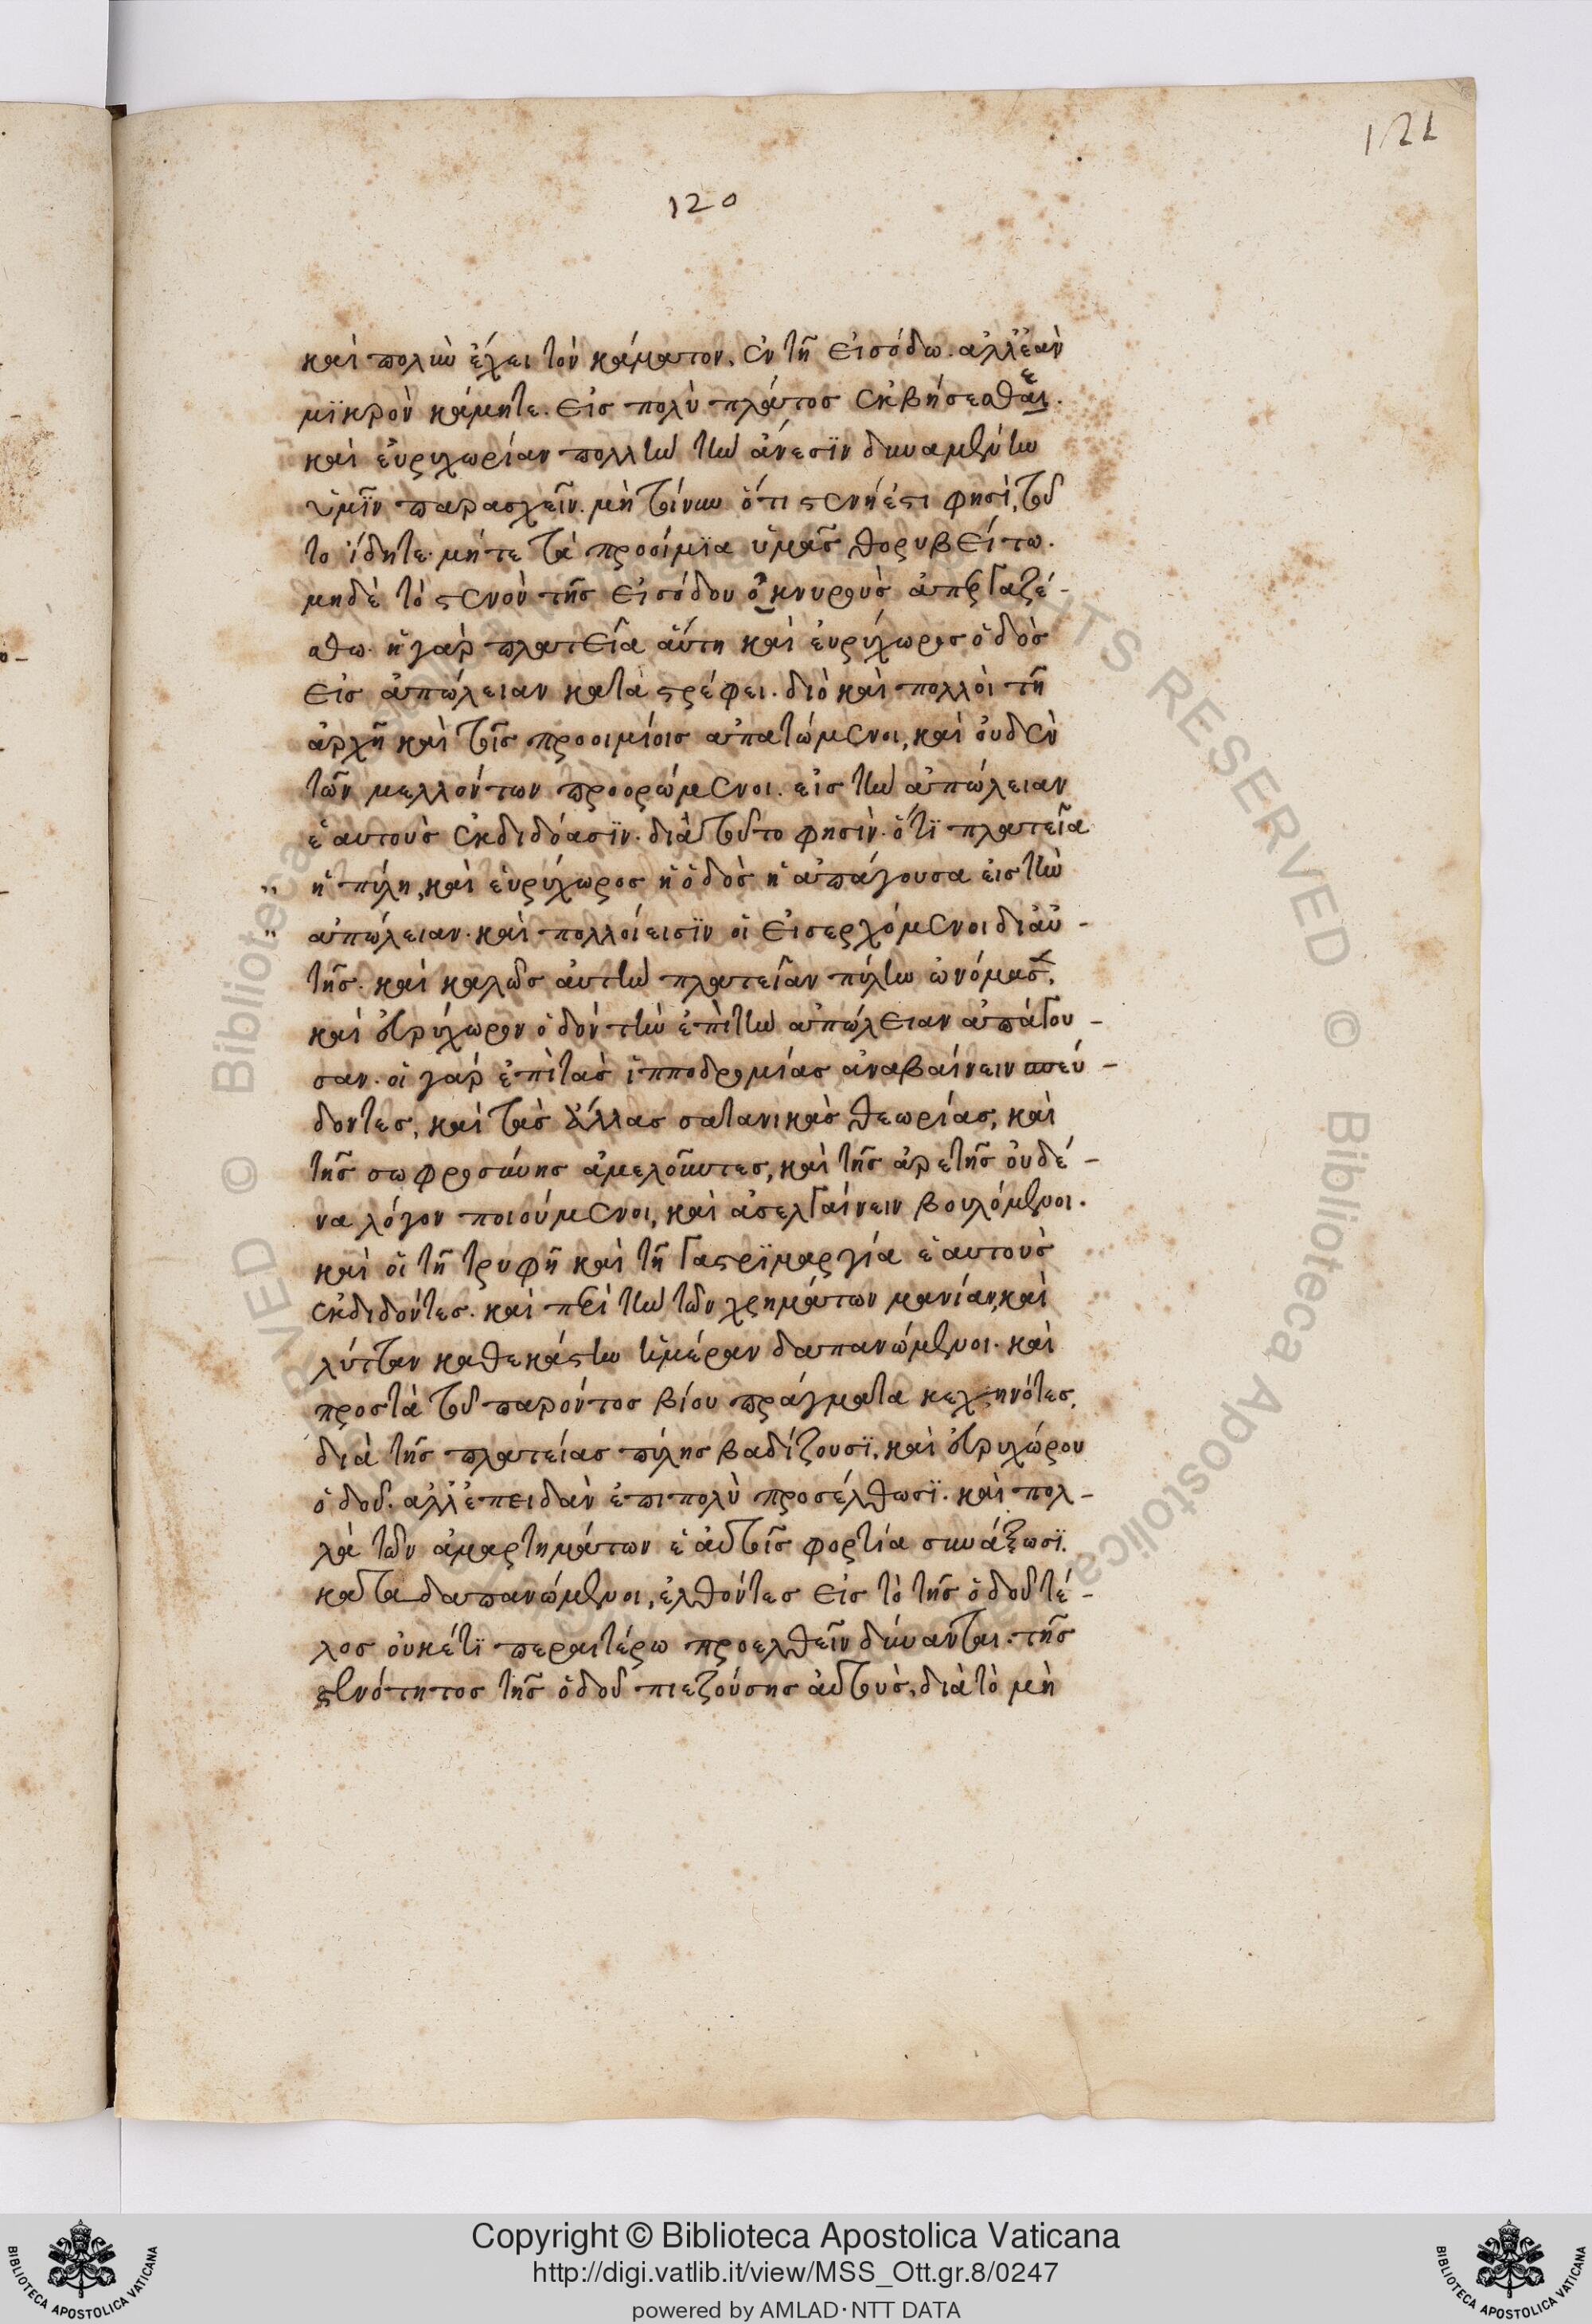 121
120
καὶ πολὺν ἔχει τὸν κάματον. ἐν τῇ εἰσόδω. ἀλλ' ἐὰν
μϊκρὸν κάμητε. εἰς πολὺ πλάτος ἐκβήσεσθαι ε.
καὶ εὐρυχωρίαν πολλὴν τὴν ἄνεσϊν δυναμένην
ὑμῖν παρασχεῖν. μὴ τοίνυν ὅτι στενή ἐστι φησὶ, τοῦ
το ἴδητε. μήτε τὰ προοίμϊα ὑμᾶς θορυβείτω.
μηδὲ τὸ στενὸν τῆς εἰσόδου ὀκνηροὺς ἀπεργαζέ-
σθω. ἡ γὰρ πλατεῖα αὕτη καὶ εὐρύχωρος ὁδὸς
εἰς ἀπώλειαν καταστρέφει. διὸ καὶ πολλοὶ τῇ
ἀρχῇ καὶ τοῖς προοιμίοις ἀπατώμενοι, καὶ οὐδὲν
τῶν μελλόντων προορώμενοι. εἰς τὴν ἀπώλειαν
ἑαυτοὺς ἐκδιδόασϊν. διὰ τοῦτο φησὶν. ὅτϊ πλατεῖα
" ἡ πύλη, καὶ εὐρύχωρος ἡ ὁδὸς ἡ ἀπάγουσα εἰς τὴν
" ἀπώλειαν. καὶ πολλοί εισϊν οἱ εἰσερχόμενοι δι' αὐ-
τῆς. καὶ καλῶς αὐτὴν πλατεῖαν πύλην ὠνόμασε,
καὶ εὐρύχωρον ὁδὸν τὴν ἐπὶ τὴν ἀπώλειαν ἀπάγου-
σαν. οἱ γὰρ ἐπὶ τὰς ἱπποδρομίας ἀναβαίνειν σπεύ-
δοντες, καὶ τὰς ἄλλας σατανικὰς θεωρίας, καὶ
τῆς σωφροσύνης ἀμελοῦντες, καὶ τῆς ἀρετῆς οὐδέ-
να λόγον ποιούμενοι, καὶ ἀσελγαίνειν βουλόμενοι.
καὶ οἱ τῇ τρυφῇ καὶ τῇ γαστρϊμαργία ἑαυτοὺς
ἐκδιδόντες. καὶ περὶ τὴν τῶν χρημάτων μανίαν, καὶ
λύτταν καθεκάστην ἡμέραν δαπανώμενοι. καὶ
προς τὰ τοῦ παρόντος βίου πράγματα κεχηνότες,
διὰ τῆς πλατείας πύλης βαδίζουσϊ, καὶ εὐρυχώρου
ὁδοῦ. ἀλλ' ἐπειδὰν ἐπιπολὺ προσέλθωσϊ. καὶ πολ-
λὰ τῶν ἁμαρτημάτων ἑαυτοῖς φορτία συνάξωσϊ.
καὶ τὰ δαπανώμενοι, ἐλθόντες εἰς τὸ τῆς ὁδοῦ τέ-
λος οὐκέτϊ περαιτέρω προελθεῖν δύνανται. τῆς
στενότητος τῆς ὁδοῦ πιεζούσης αὐτοὺς, διὰ τὸ μὴ
Copyright © Biblioteca Apostolica Vaticana
http://digi.vatlib.it/view/MSS_Ott.gr.8/0247
powered by AMLAD·NTT DATA
BIBLIOTECA APOSTOLICA VATICANA
BIBLIOTECA APOSTOLICA VATICANA